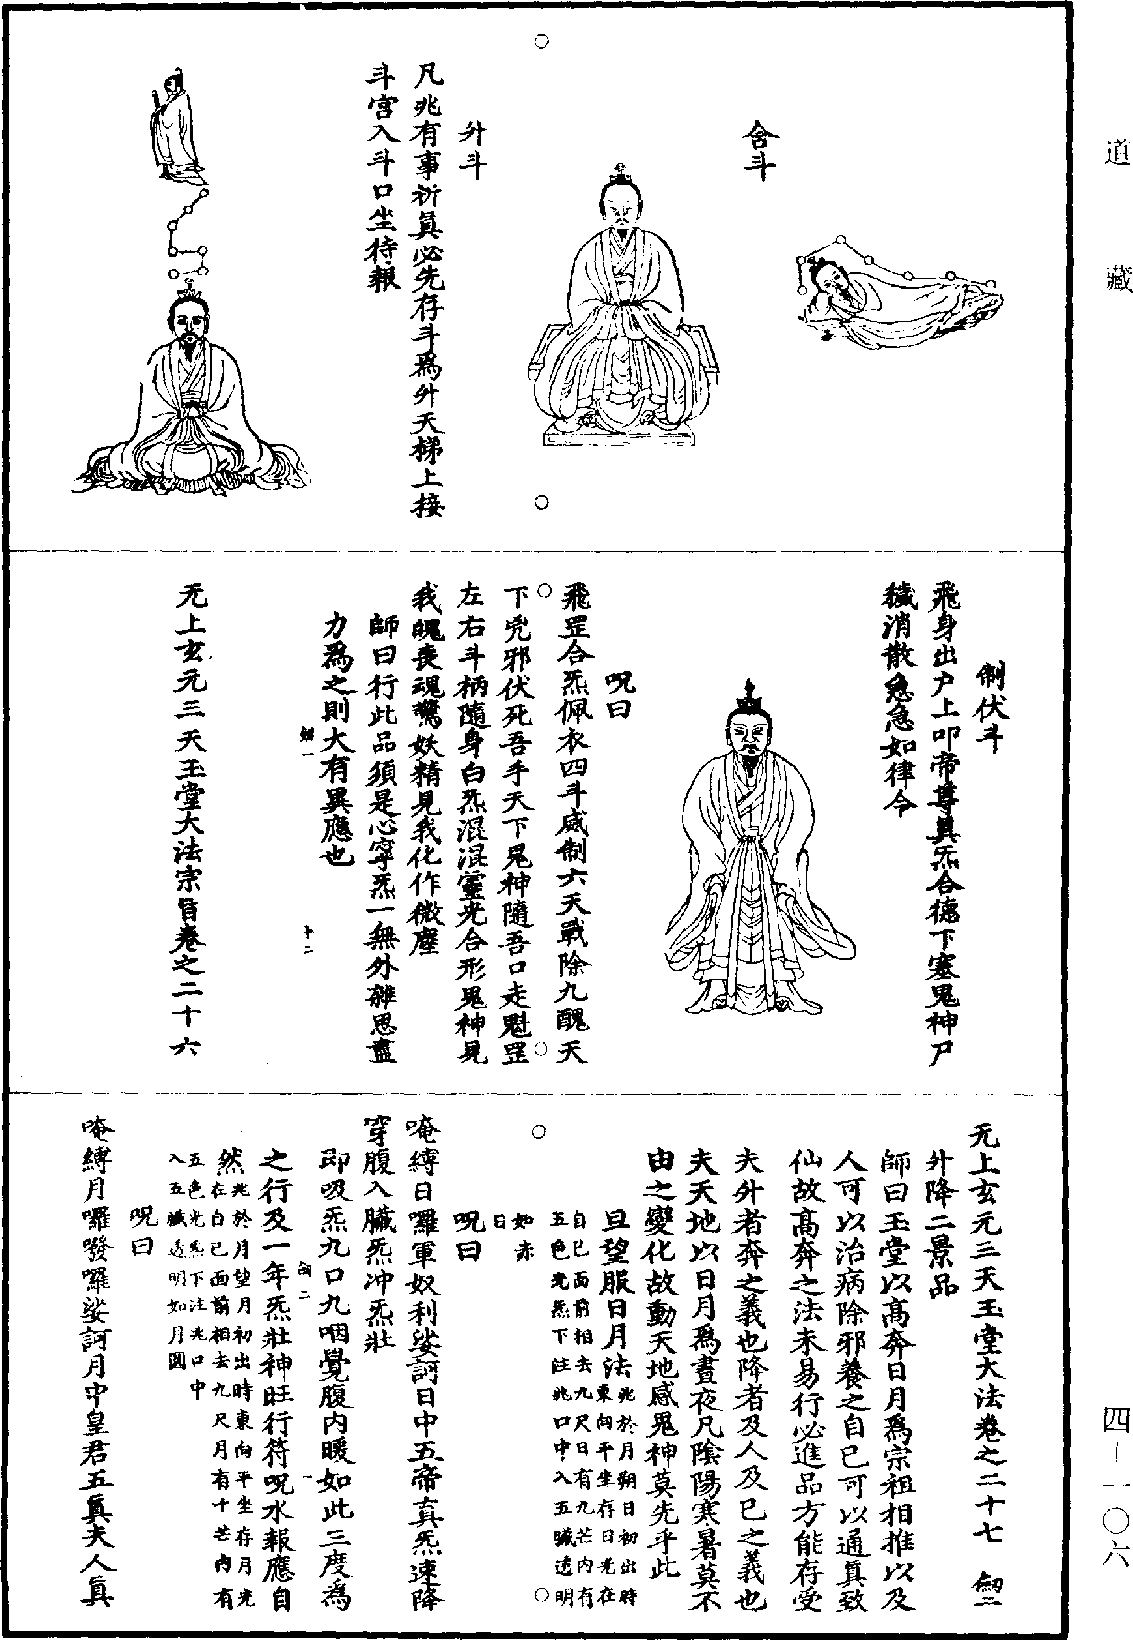 道藏
四—一〇六
舍斗
升斗
凡兆有事祈真必先存斗爲升天梯上接
斗宮入斗口坐待報
制伏斗
飛身出戶上叩帝尊真炁合德下塞鬼神尸
穢消散急急如律令
呪曰
飛罡合炁佩衣四斗威制六天戰除九醜天
下兇邪伏死吾手天下鬼神隨吾口走魁罡
左右斗柄隨身白炁混混靈光合形鬼神見
我魄喪魂驚妖精見我化作微塵
師曰行此品須是心寧炁一無外雜思盡
力爲之則大有異應也
十二
无上玄元三天玉堂大法宗旨卷之二十六
无上玄元三天玉堂大法卷之二十七
升降二景品
師曰玉堂以高奔日月爲宗祖相推以及
人可以治病除邪養之自已可以通真致
仙故高奔之法未易行必進品方能存受
夫升者奔之義也降者及人及已之義也
夫天地以日月爲晝夜凡陰陽寒暑莫不
由之變化故動天地感鬼神莫先乎此
旦望服日月法兆於月朔日初出時
東向平坐存日光在
自已面前相去九尺日有九芒内有
五色光炁下注兆口中入五臟透明
如赤
日
呪曰
唵縛日囉軍奴利娑訶日中五帝真炁速降
穿腹入臟炁冲炁壯
即吸炁九口九咽覺腹内暖如此三度爲
之行及一年炁壯神旺行符呪水報應自
然兆於月望月初出時東向平坐存月光
在自已面前相去九尺月有十芒内有
五色光炁下注兆口中
入五臟透明如月圓
呪曰
唵縛月囉發囉娑訶月中皇君五真夫人真